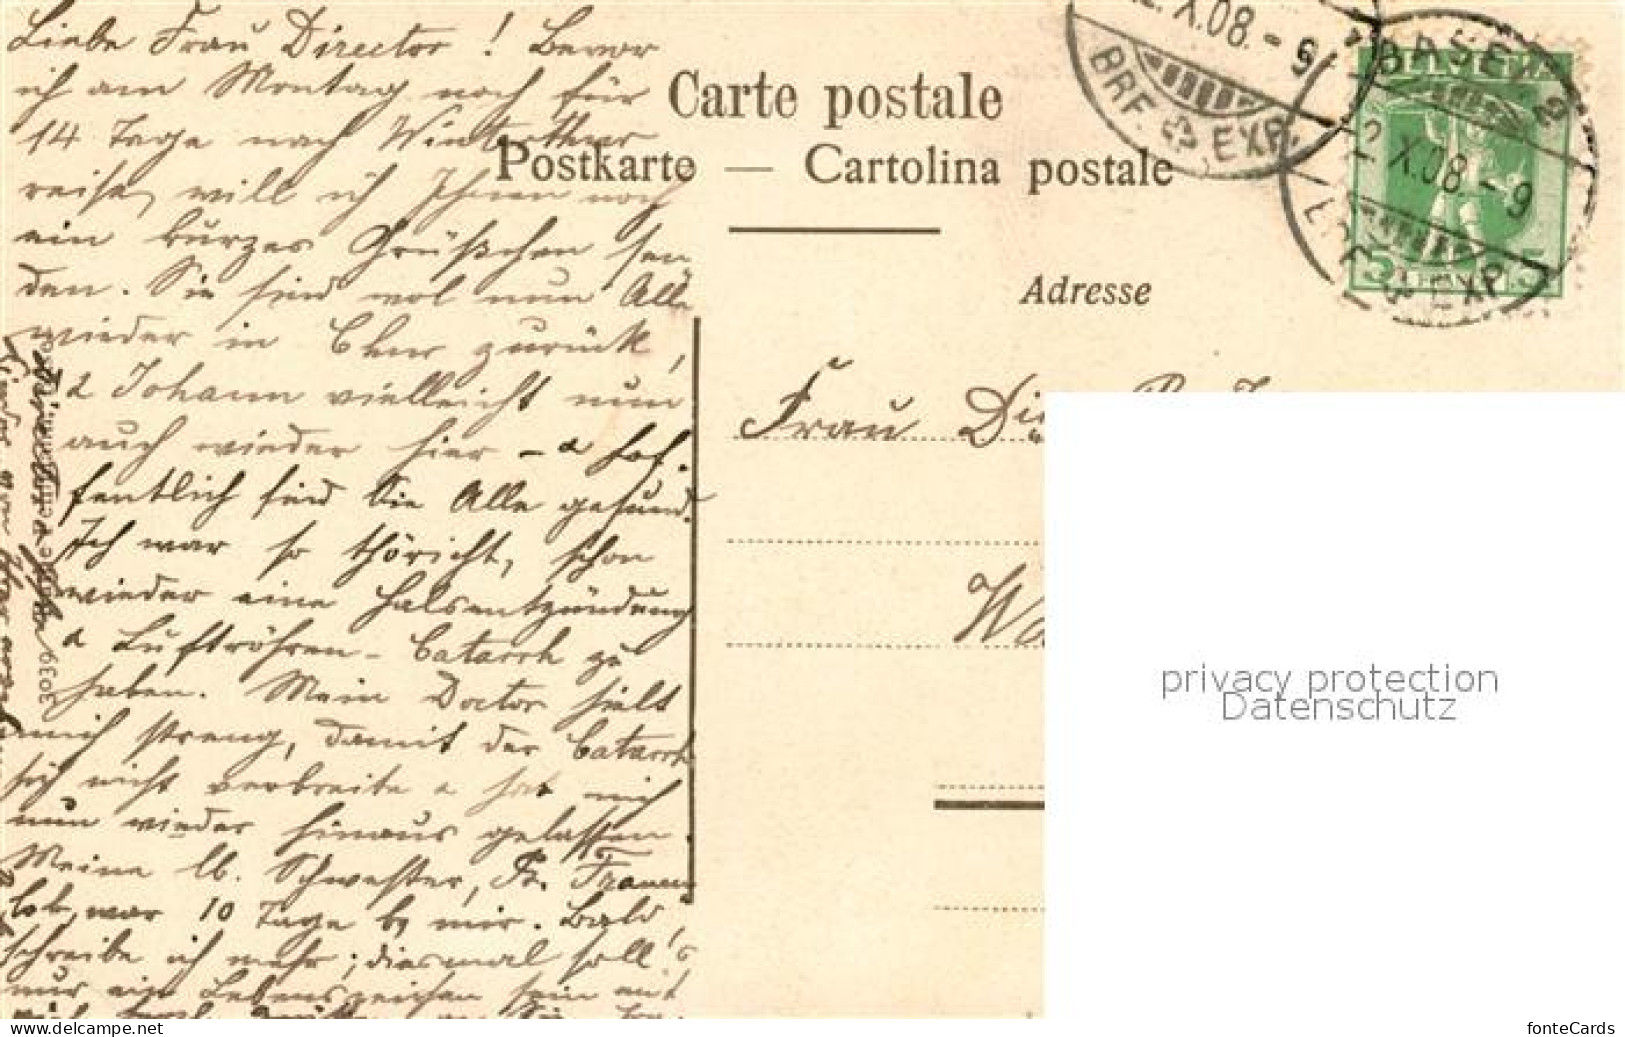 Liebe Frau Director ! Bevor
ich am Montag noch für
14 Tage nach Winterthur
reise, will ich Ihnen noch
ein kurzes Grüßchen sen
den. Sie sind wol nun Alle
wieder in Chur zurück,
& Johann vielleicht nun
auch wieder hier – & hof-
fentlich sind Sie Alle gesund.
Ich war so thöricht, schon
wieder eine Halsentzündung
& Luftröhren-Catarrh zu
haben. Mein Doctor hielt
mich streng, damit der Catarrh
sich nicht verbreite & hat mich
nun wieder hinaus gelassen.
Meine lb. Schwester, Fr.
war 10 Tage by mir. Bald
schreibe ich mehr; diesmal soll's
nur ein Lebenszeichen sein mit
Carte postale
Postkarte — Cartolina postale
Adresse
Frau
3039
X.08.-9
BRF. EXP.
BASEL 2
X.08.-9
EXP.
HELVETIA
5 5
privacy protection
Datenschutz
https://www.delcampe.net
fonteCards